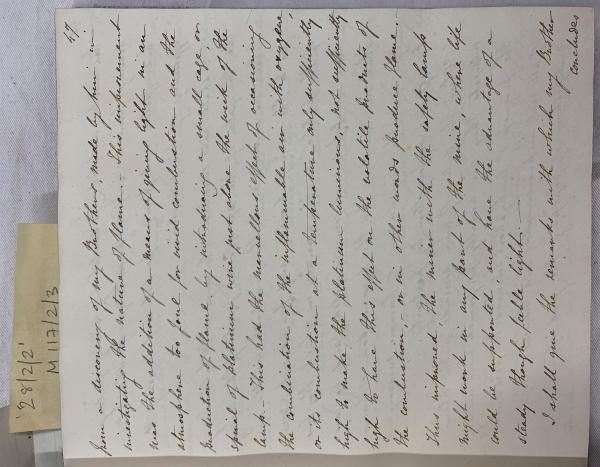 47.
from a discovery of my Brothers, made by him in
investigating the nature of flame. – This improvement
was the addition of a means of giving light in an
atmosphere too foul for vivid combustion and the
production of flame by introducing a small cage or
spiral of platinum wire just above the wick of the
lamp. – This had the marvellous effect of occasioning
the combination of the inflammable air with oxygene,
or its combustion at a temperature only sufficiently
high to make the platinum luminous, not sufficiently
high to have this effect on the volatile products of
the combustion, – or in other words produce flame.
Thus improved, the miner with the safety lamp
might work in any part of the mine, where life
could be supported, and have the advantage of a
steady though feeble light. –
I shall give the remarks with which my Brother
concludes
'28/2/2'
M 117/2/3